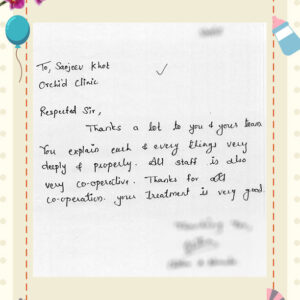 To, Sanjeev Khot
Orchid Clinic
Respected Sir,
Thanks a lot to you & your team
You explain each & every things very
deeply & properly. All staff is also
very co-operative. Thanks for all
co-operation. your Treatment is very good.